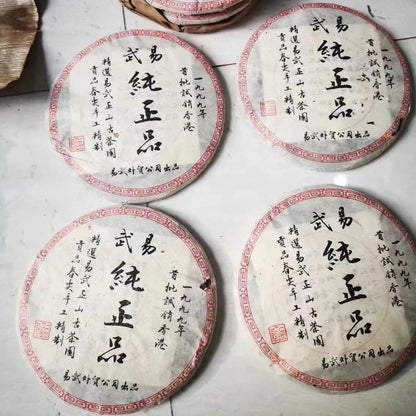 易武
一九九九年
首批試銷香港
純正品
精選易武正山古茶園
貢品春尖手工精制
易武外貿公司出品
易武
一九九九年
首批試銷香港
純正品
精選易武正山古茶園
貢品春尖手工精制
易武外貿公司出品
易武
一九九九年
首批試銷香港
純正品
精選易武正山古茶園
貢品春尖手工精制
易武外貿公司出品
易武
一九九九年
首批試銷香港
純正品
精選易武正山古茶園
貢品春尖手工精制
易武外貿公司出品